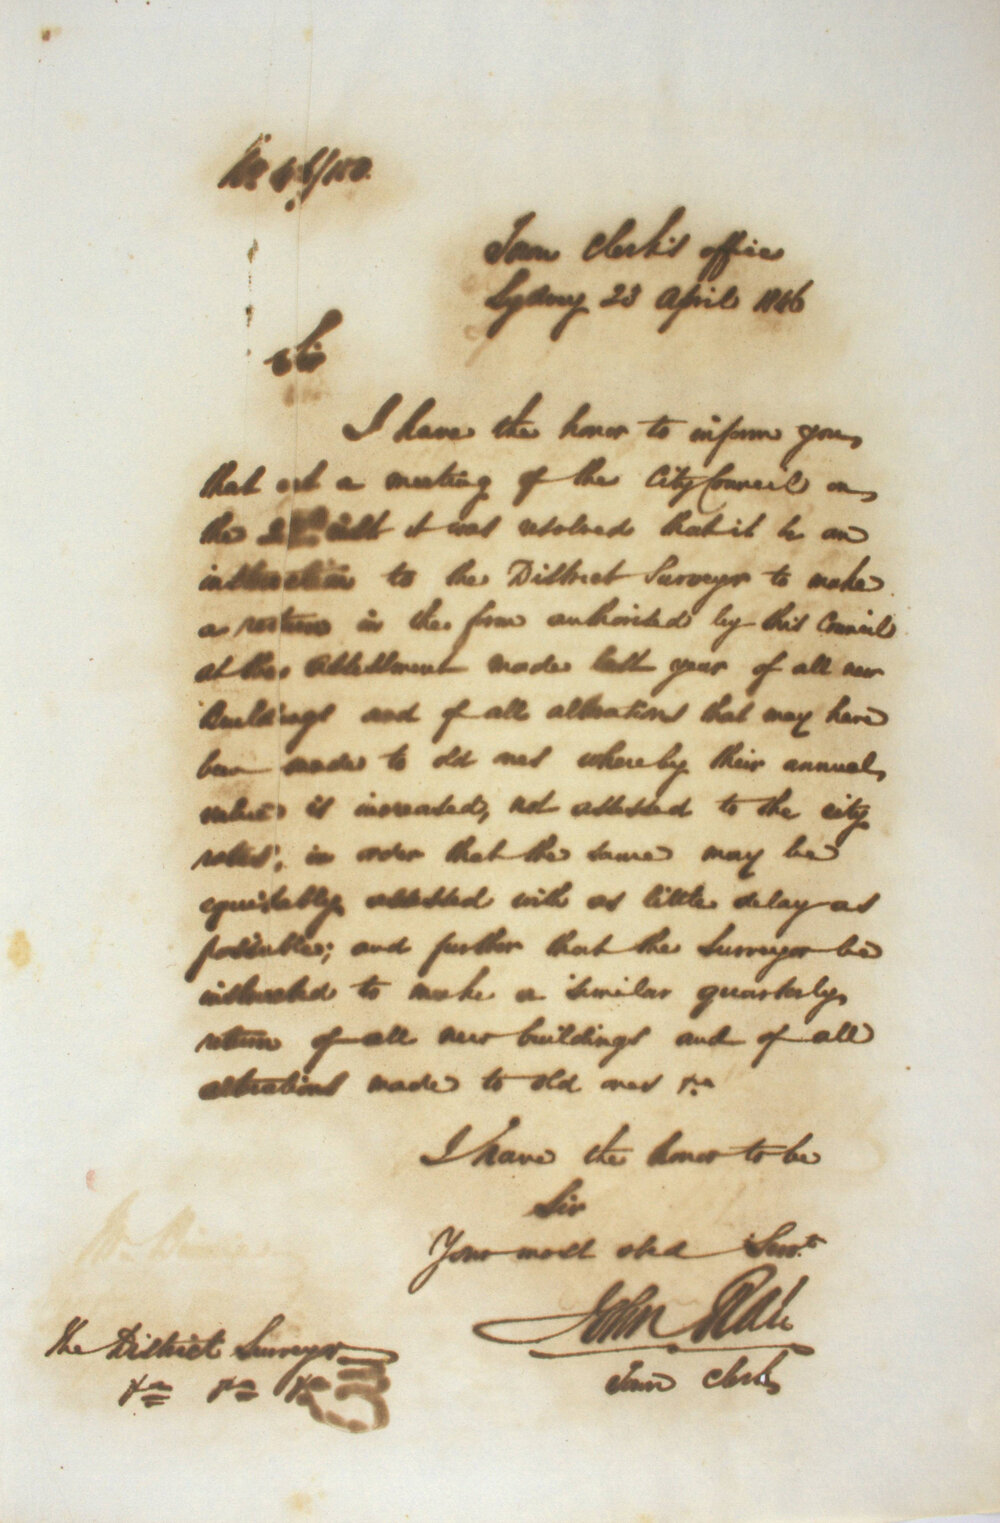 Town Clerk's office
Sydney 23 April 1846
Sir
I have the honor to inform you,
that at a meeting of the City Council on
the ult it was resolved that it be an
instruction to the District Surveyor to make
a return in the form authorised by this Council
at the assessment made last year of all new
Buildings and of all alterations that may have
been made to old ones whereby their annual
value is increased, not assessed to the city
rates; in order that the same may be
equitably assessed with as little delay as
possible; and further that the Surveyor be
instructed to make a similar quarterly
return of all new buildings and of all
alterations made to old ones &c
I have the honor to be
Sir
Your most obed Servt
John Rae
Town Clerk
The District Surveyor
&c &c &c